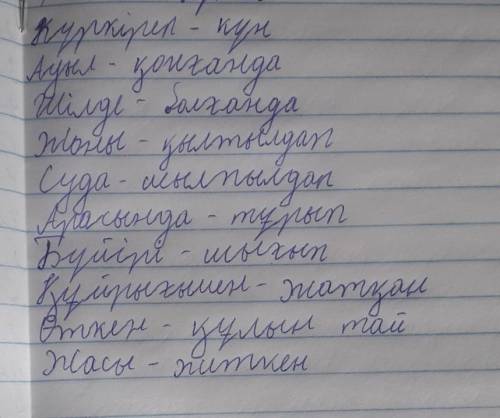 Күркіреп - күн
Ауыл - қонханда
Шілде - болханда
Жоны - қылтылдап
Суда - мылпылдап
Арасында - тұрып
Бүйірі - шыхып
Құйрыхымен - жатқан
Өткен - құлын тай
Жасы - житкен